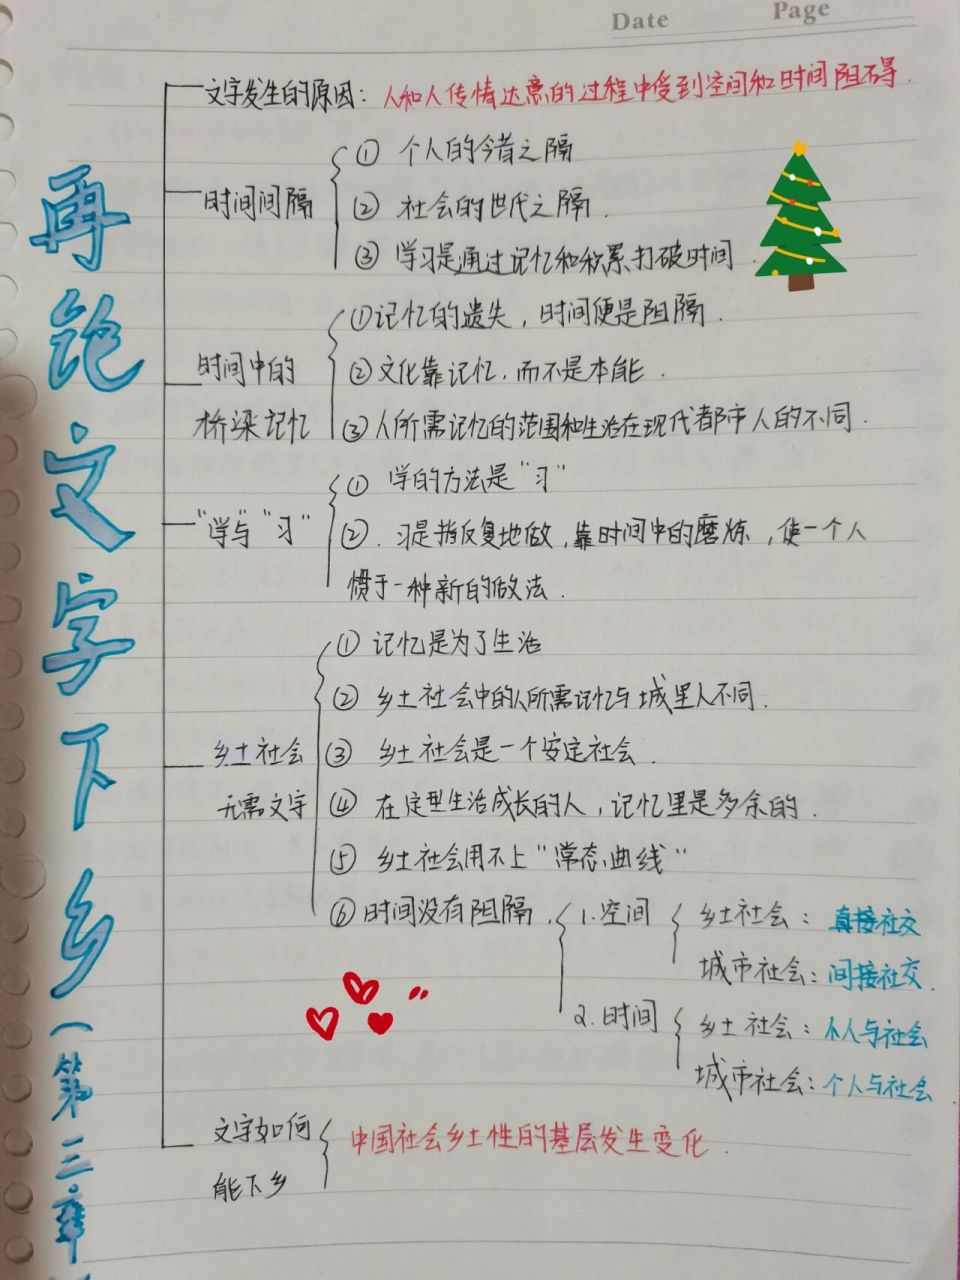 Date Page
再论文字下乡（第三章）
文字发生的原因：人和人传情达意的过程中受到空间和时间阻碍.
时间间隔
① 个人的今昔之隔
② 社会的世代之隔.
③ 学习是通过记忆和积累打破时间.
时间中的
桥梁记忆
①记忆的遗失，时间便是阻隔.
②文化靠记忆，而不是本能.
③人所需记忆的范围和生活在现代都市人的不同.
"学与" "习"
① 学的方法是"习"
②.习是指反复地做，靠时间中的磨炼，使一个人
惯于一种新的做法.
乡土社会
无需文字
① 记忆是为了生活
② 乡土社会中的人所需记忆与城里人不同.
③ 乡土社会是一个安定社会.
④ 在定型生活成长的人，记忆里是多余的.
⑤ 乡土社会用不上"常态曲线"
⑥时间没有阻隔.
1.空间
乡土社会：直接社交
城市社会：间接社交.
2.时间
乡土社会：个人与社会
城市社会：个人与社会.
文字如何
能下乡
中国社会乡土性的基层发生变化.